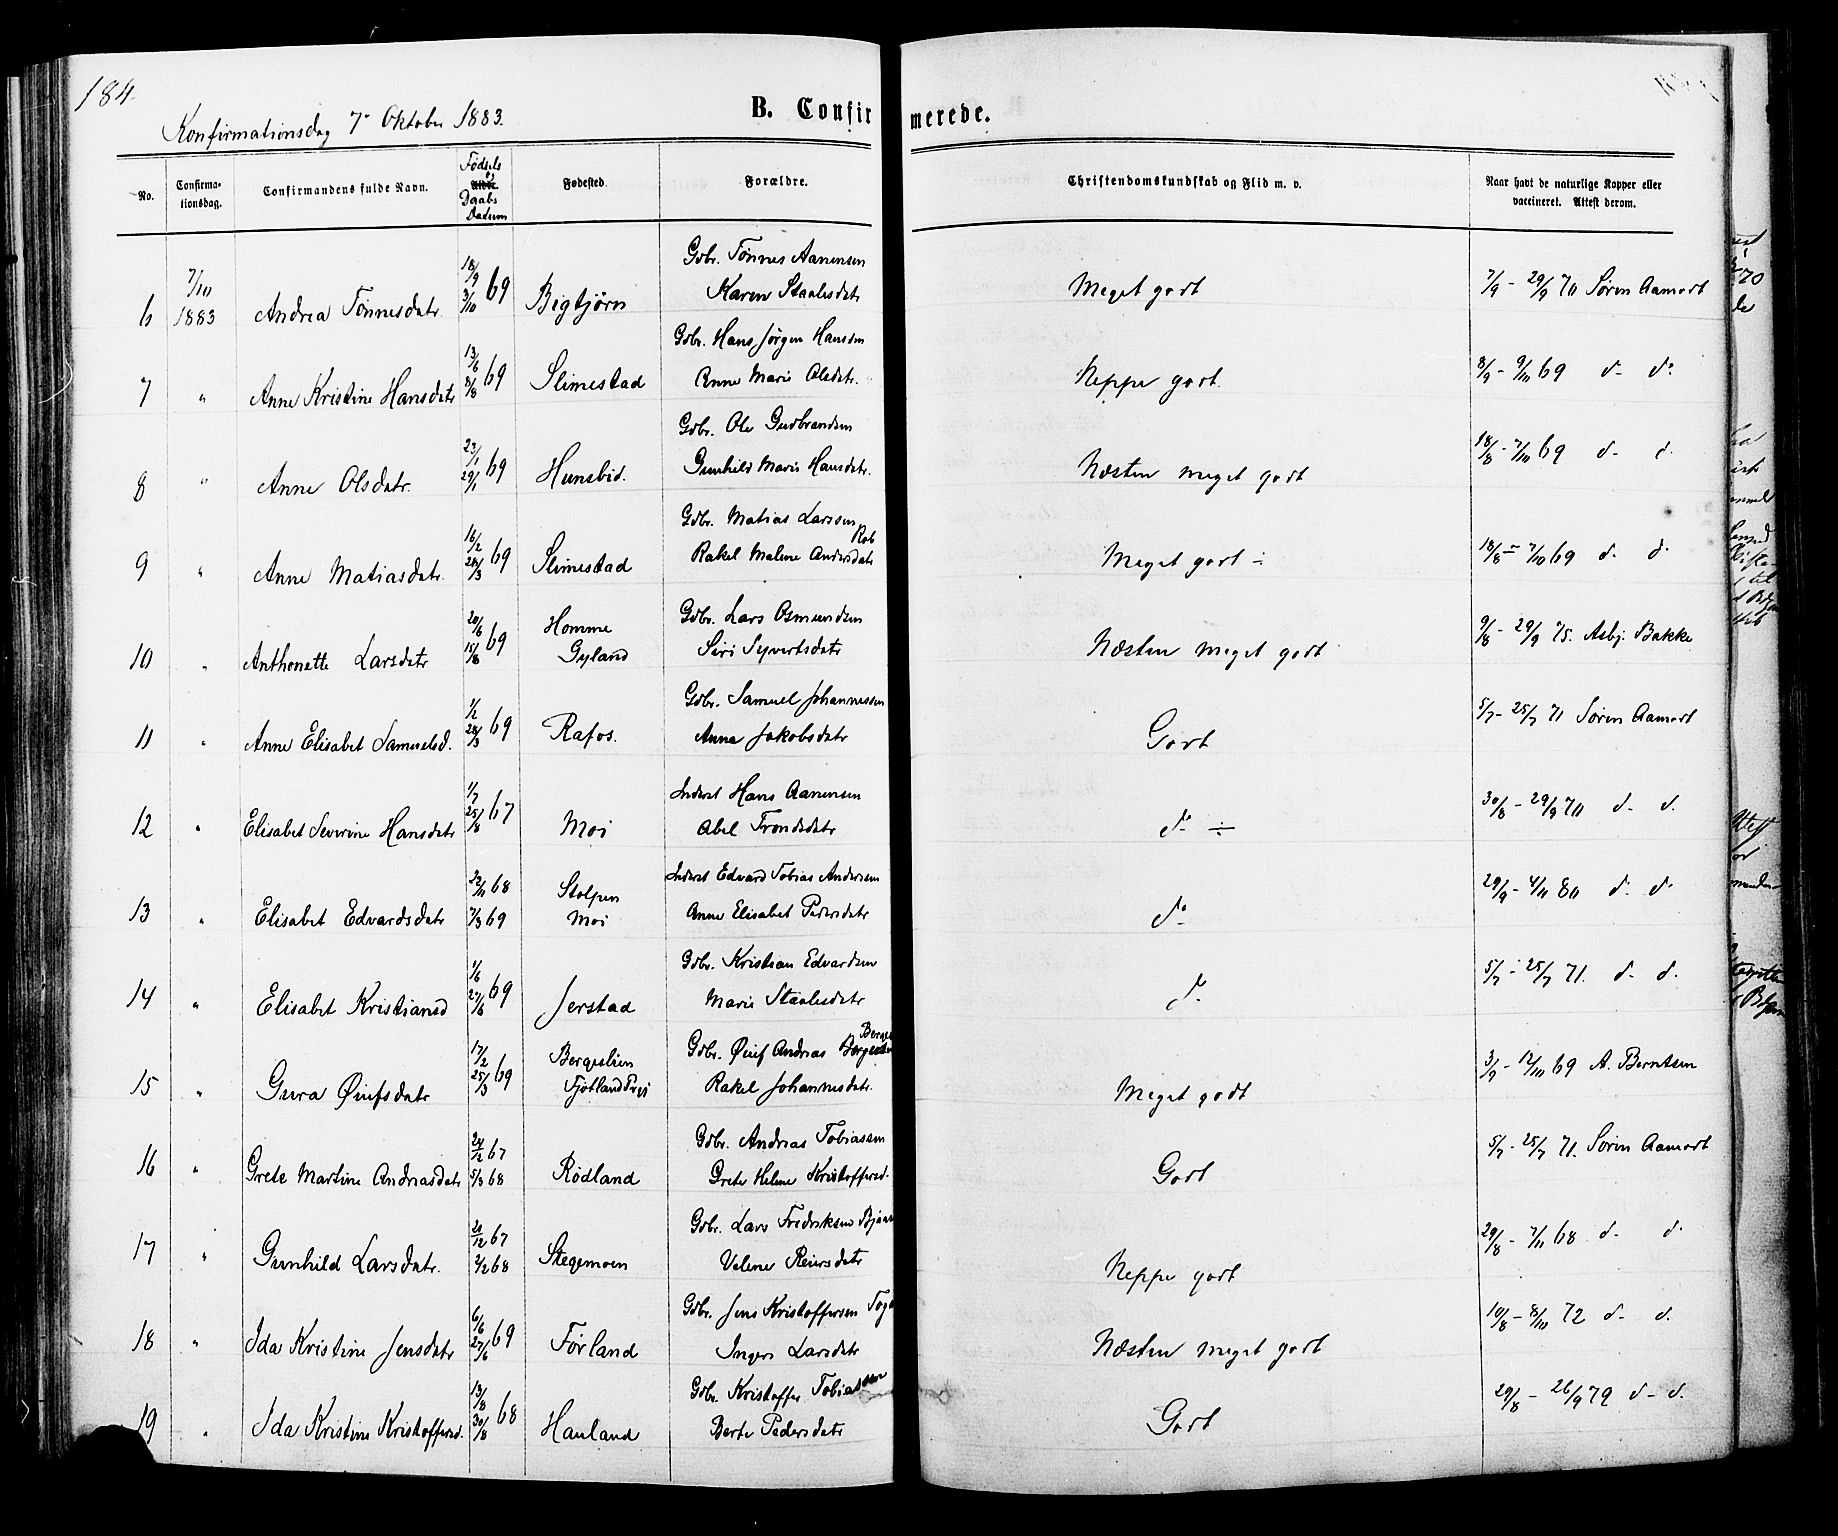 184.
Konfirmationsdag 7de Oktober 1883.
B. Confirmerede.
No.
Confirma-
tionsdag.
Confirmandens fulde Navn.
Fødsels
og
Alder
Daabs
Datum
Fødested.
Forældre.
Christendomskundskab og Flid m. v.
Naar havt de naturlige Kopper eller
vaccineret. Attest derom.
6 7/10 1883 Andrea Tønnesdatr. 18/9 3/10 69 Bigtjørn Gdbr. Tønnes Aanensen Karen Staalesdatr Meget godt 7/9 - 29/9 70 Søren Aamodt
7 " Anne Kristine Hansdatr 13/6 8/8 69 Slimestad Gdbr. Hans Jørgen Hansen Anne Marie Olsdatr. Neppe godt. 8/9 - 9/10 69 d- do
8 " Anne Olsdatr. 23/1 29/1 69 Hunsbid. Gdbr. Ole Gudbrandsen Gunhild Marie Hansdatr. Næsten meget godt 18/8 - 7/10 69 d- d.
9 " Anne Matiasdatr. 16/2 28/3 69 Slimestad Gdbr. Matias Larssen Rob Rakel Malene Andersdatr Meget godt ÷ 18/8 - 7/10 69 d- d-
10 " Anthonette Larsdatr 20/6 15/8 69 Homme Gyland Gdbr. Lars Osmundsen Siri Syvertsdatr Næsten meget godt 9/8 - 29/9 75. Asbj. Bakke
11 " Anne Elisabet Samuelsd. 1/2 28/3 69 Rafos. Gdbr. Samuel Johannessen Anna Jakobsdatr Godt 5/7 - 25/7 71 Søren Aamodt
12 " Elisabet Severine Hansdatr 1/7 25/8 67 Moi Inderst Hans Aanensen Abel Trondsdatr d- ÷ 30/8 - 29/9 70 d- d.
13 " Elisabet Edvardsdatr 22/11 68 7/3 69 Stolpen Moi Inderst Edvard Tobias Andersen Anne Elisabet Pedersdatr do 29/9 - 4/11 80 d- do
14 " Elisabet Kristiansd 1/6 27/6 69 Jerstad Gdbr. Kristian Edvardsen Marie Staalesdatr do 5/7 - 25/7 71. d- d.
15 " Gura Øiufsdatr 17/2 25/3 69 Bergeslien Fjotland Prgj Gdbr. Øiuf Andreas Berges Rakel Johannesdatr. Meget godt 3/9 - 12/10 69 A. Berntsen
16 " Grete Martine Andreasdatr 24/12 67 5/3 68 Rødland Gdbr. Andreas Tobiassen Grete Helene Kristoffersd. Godt 5/7 - 25/7 71. Søren Aamodt
17 " Gunhild Larsdatr. 21/12 67 2/2 68 Stegemoen Gdbr. Lars Fredriksen Velene Reiersdatr Neppe godt 29/8 - 7/11 68 d- d
18 " Ida Kristine Jensdatr 6/6 27/6 69 Førland Gdbr. Jens Kristoffersen Inger Larsdatr Næsten meget godt 10/8 - 8/10 72 d- d.
19 " Ida Kristine Kristoffersd. 13/8 30/8 68 Hauland Gdbr. Kristoffer Tobiassen Berte Pedersdatr Godt 29/8 - 26/9 79 d- d.